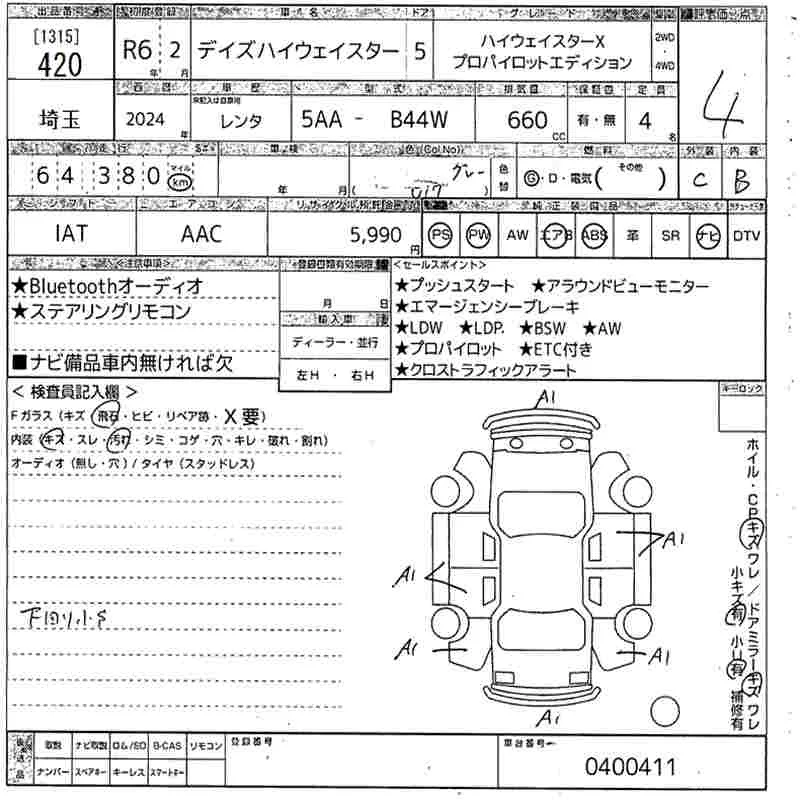 出品番号 初度登録 車名 ドア グレード 駆動 評価点
[1315]
420
R6 年 2 月
デイズハイウェイスター 5
ハイウェイスターX
プロパイロットエディション
2WD
・
4WD
4
西暦 車歴 型式 排気量 保証書 定員
埼玉
2024 年
未記入は自家用
レンタ
5AA - B44W
660 CC
有・無
4 名
走行 車検 色(Col.No) 燃料 外装 内装
64380 マイル km
年 月
グレー
( )
色替
G・D・電気( その他 )
C B
シフト エアコン リサイクル預託金 純正装備品
IAT AAC 5,990 円
PS PW AW エアB ABS 革 SR ナビ DTV
<注意事項>
★Bluetoothオーディオ
★ステアリングリモコン
■ナビ備品車内無ければ欠
登録書類有効期限
月 日
輸入車
ディーラー・並行
左H ・ 右H
<セールスポイント>
★プッシュスタート ★アラウンドビューモニター
★エマージェンシーブレーキ
★LDW ★LDP. ★BSW ★AW
★プロパイロット ★ETC付き
★クロストラフィックアラート
< 検査員記入欄 >
Fガラス(キズ・飛石・ヒビ・リペア跡・X要)
内装(キズ・スレ・汚れ・シミ・コゲ・穴・キレ・破れ・割れ)
オーディオ(無し・穴)/タイヤ(スタッドレス)
キーロック
A1
A1
A1
A1
A1
A1
ホイル・CPキズワレ/ドアミラーキズワレ
小キズ有 小U有 補修有
後送品
取説 ナビ取説 ロム/SD B-CAS リモコン
ナンバー スペアキー キーレス スマートキー
登録番号
車台番号
0400411